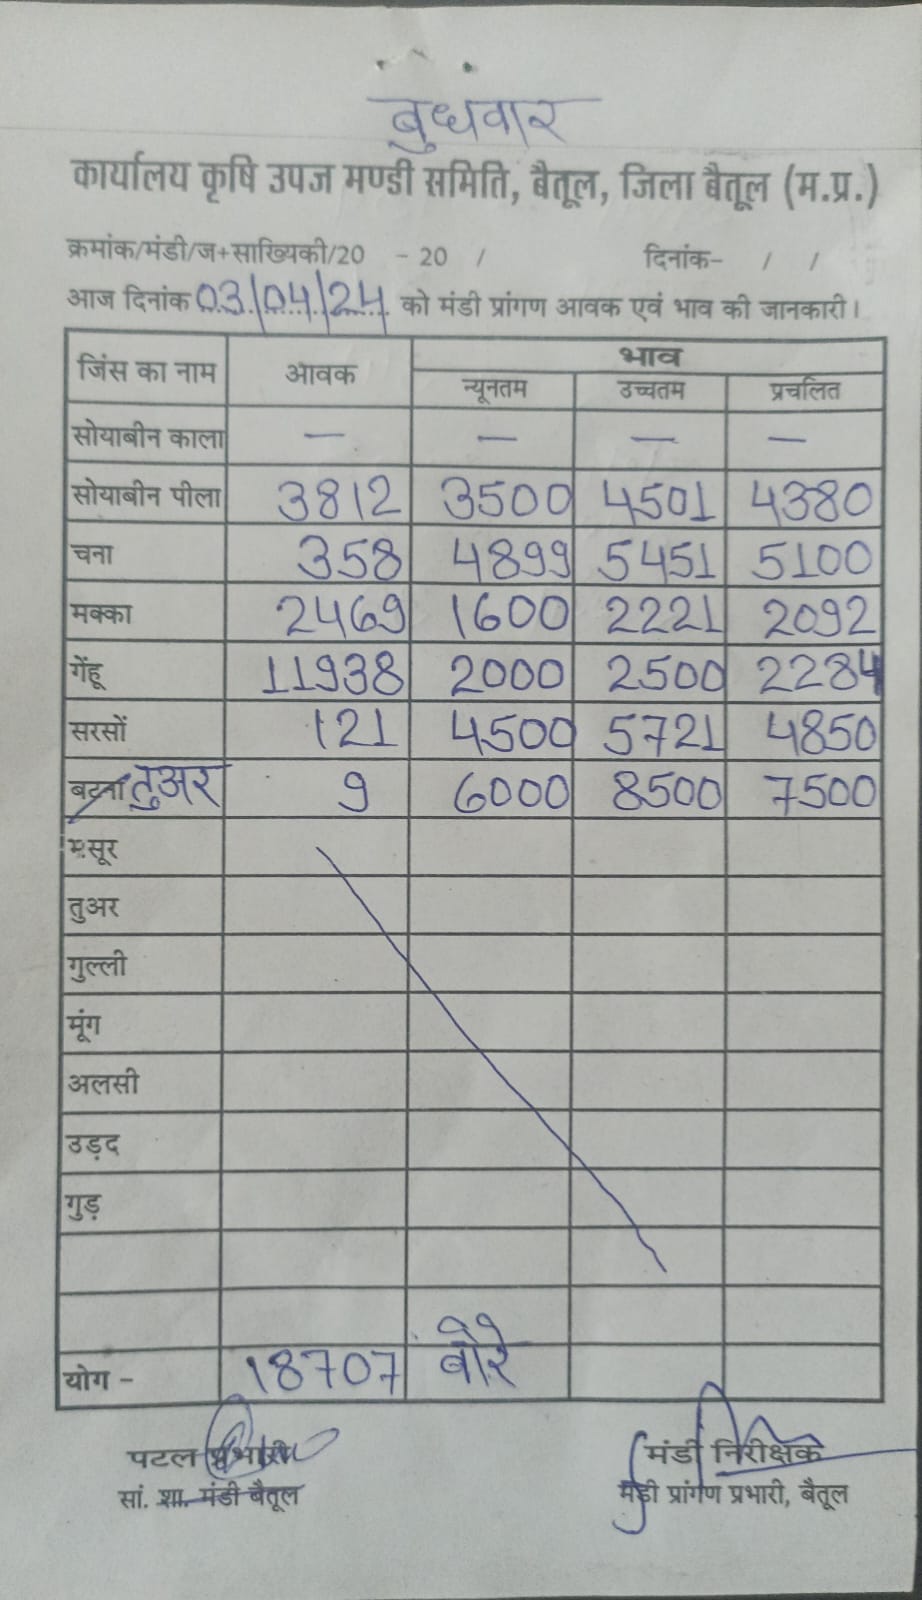 बुधवार
कार्यालय कृषि उपज मण्डी समिति, बैतूल, जिला बैतूल (म.प्र.)
क्रमांक/मंडी/ज+साख्यिकी/20 - 20 / दिनांक- / /
आज दिनांक 03/04/24 को मंडी प्रांगण आवक एवं भाव की जानकारी।
जिंस का नाम आवक भाव
न्यूनतम उच्चतम प्रचलित
सोयाबीन काला — — — —
सोयाबीन पीला 3812 3500 4501 4380
चना 358 4899 5451 5100
मक्का 2469 1600 2221 2092
गेंहू 11938 2000 2500 2284
सरसों 121 4500 5721 4850
बटना तुअर 9 6000 8500 7500
मसूर
तुअर
गुल्ली
मूंग
अलसी
उड़द
गुड़
योग - 18707 बोरे
पटल प्रभारी मंडी निरीक्षक
सां. शा. मंडी बैतूल मंडी प्रांगण प्रभारी, बैतूल